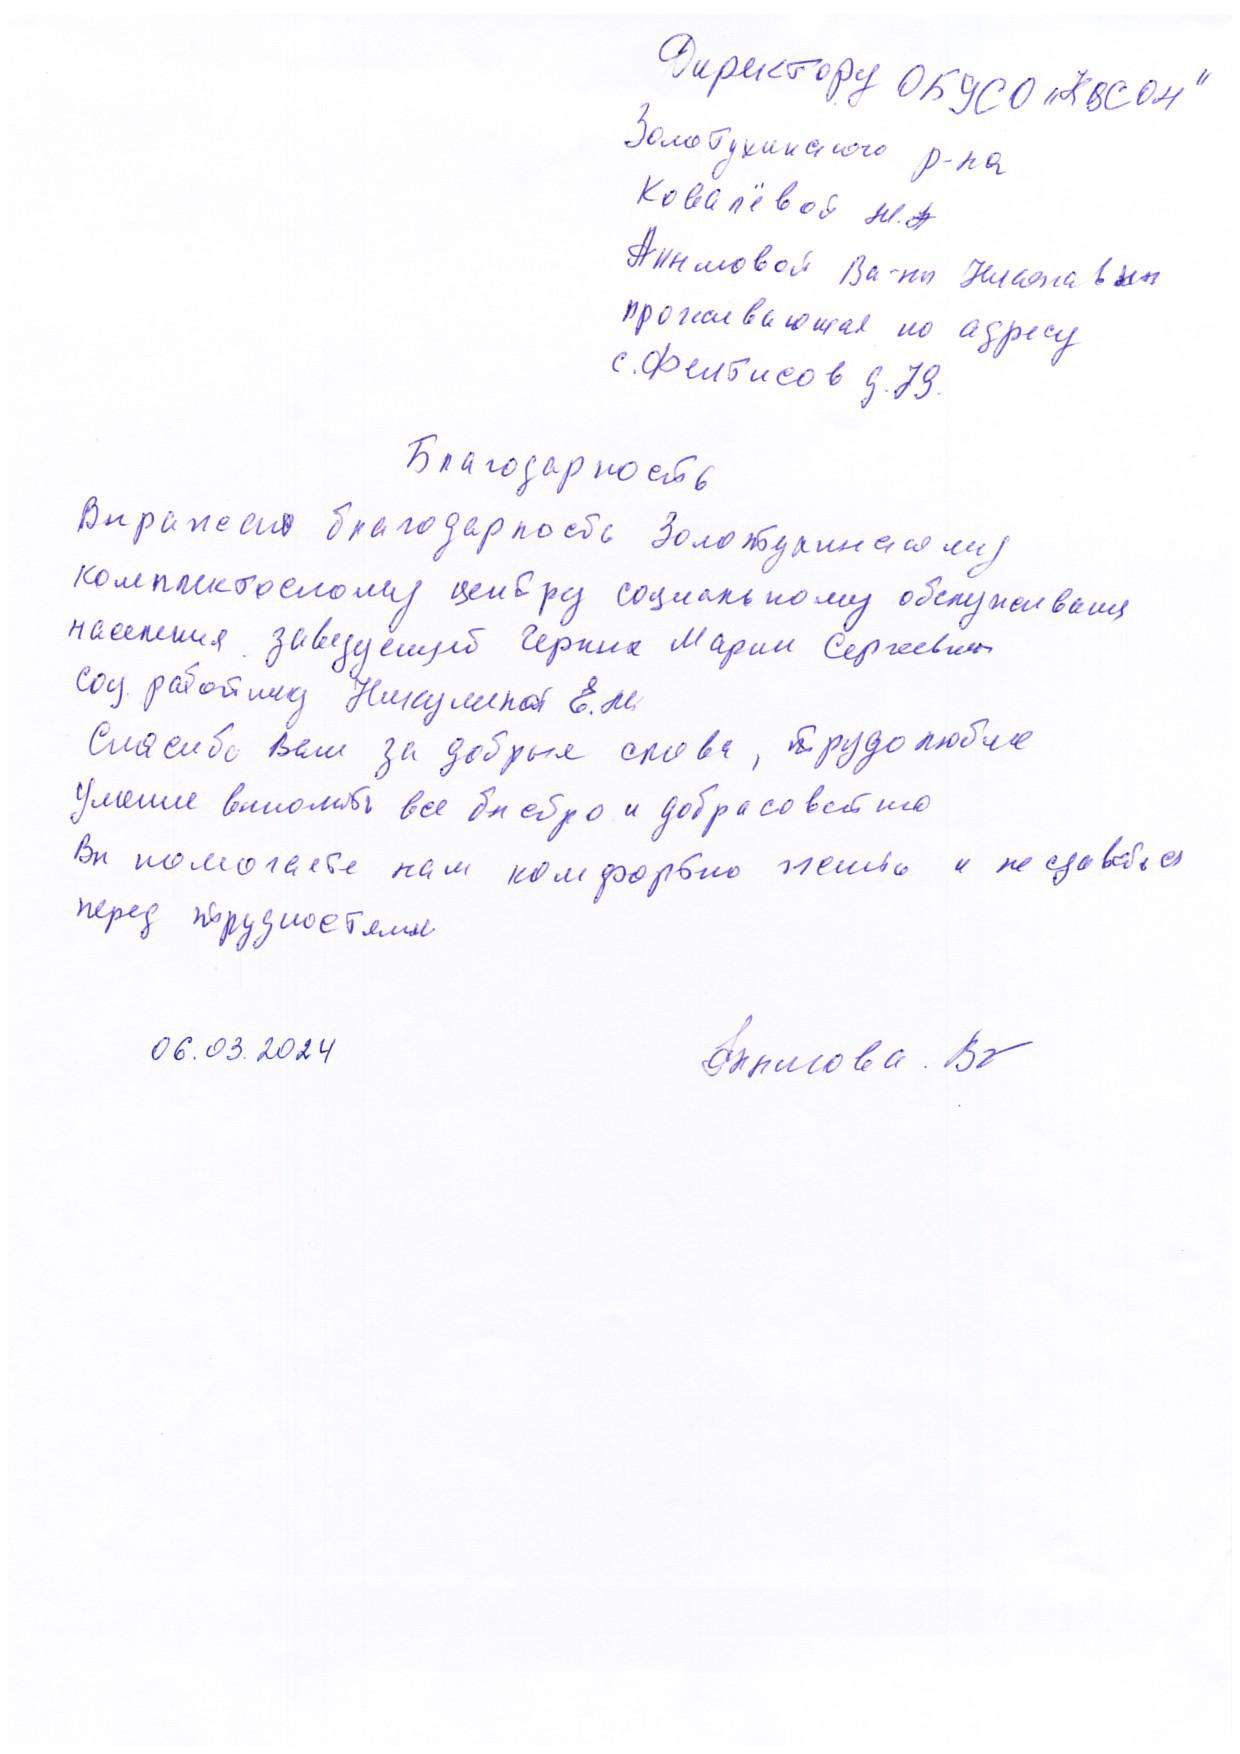 Директору ОБУСО "КЦСОН"
Золотухинского р-на
Ковалёвой
проживающая по адресу
с. Фентисов д.
Благодарность
Выражаю благодарность Золотухинскому
центру социальному обслуживания
населения заведующей Черных Марии Сергеевны
соц. работнику Никулиной Е.
Спасибо Вам за добрые слова, трудолюбие
Умение все быстро и добрасовстно
Вы помогаете нам комфортно жить и не сдаваться
перед трудностями
06.03.2024